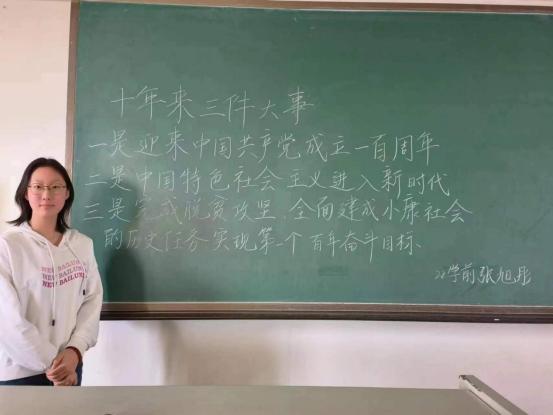 十年来三件大事
一是迎来中国共产党成立一百周年
二是中国特色社会主义进入新时代
三是完成脱贫攻坚、全面建成小康社会
的历史任务实现第一个百年奋斗目标
22学前张旭彤
NEW BAILUN
NEW BAILUN
NEW BAILUN